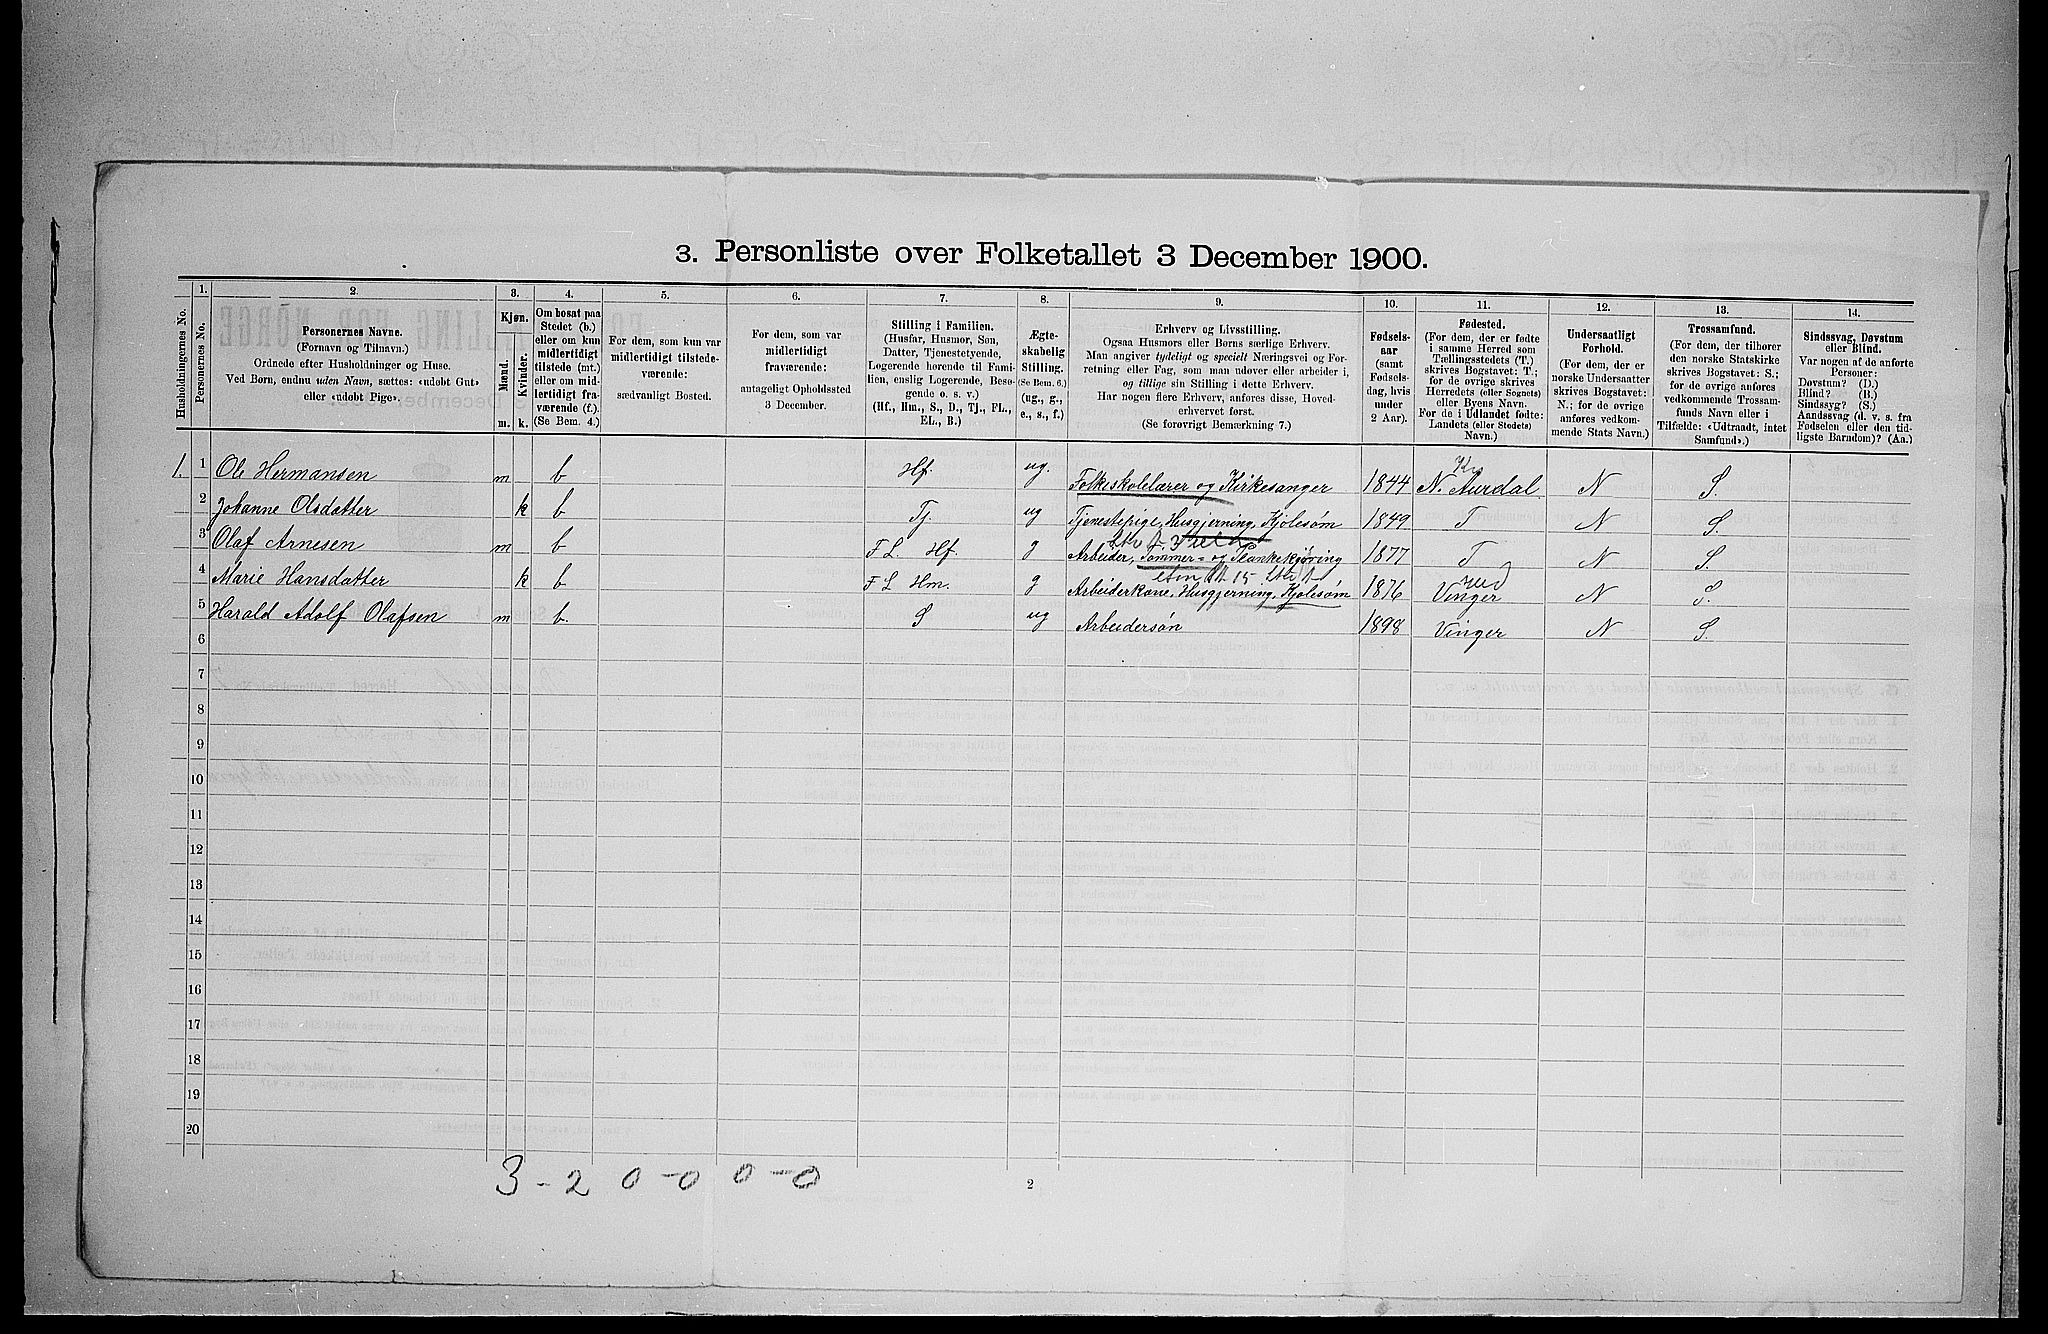 3. Personliste over Folketallet 3 December 1900.
1. 2. 3. 4. 5. 6. 7. 8. 9. 10. 11. 12. 13. 14.
Husholdningernes No.
Personernes No.
Personernes Navne.
(Fornavn og Tilnavn.)
Ordnede efter Husholdninger og Huse.
Ved Børn, endnu uden Navn, sættes: «udøbt Gut»
eller «udøbt Pige».
Kjøn.
Mænd.
Kvinder.
m. k.
Om bosat paa
Stedet (b.)
eller om kun
midlertidigt
tilstede (mt.)
eller om mid-
lertidigt fra-
værende (f.).
(Se Bem. 4.)
For dem, som kun var
midlertidigt tilstede-
værende:
sædvanligt Bosted.
For dem, som var
midlertidigt
fraværende:
antageligt Opholdssted
3 December.
Stilling i Familien.
(Husfar, Husmor, Søn,
Datter, Tjenestetyende,
Logerende hørende til Fami-
lien, enslig Logerende, Besø-
gende o. s. v.)
(Hf., Hm., S., D., Tj., FL.,
EL., B.)
Ægte-
skabelig
Stilling.
(Se Bem. 6.)
(ug., g.,
e., s., f.)
Erhverv og Livsstilling.
Ogsaa Husmors eller Børns særlige Erhverv.
Man angiver tydeligt og specielt Næringsvei og For-
retning eller Fag, som man udøver eller arbeider i,
og tillige sin Stilling i dette Erhverv.
Har nogen flere Erhverv, anføres disse, Hoved-
erhvervet først.
(Se forøvrigt Bemærkning 7.)
Fødsels-
aar
(samt
Fødsels-
dag, hvis
under
2 Aar).
Fødested.
(For dem, der er fødte
i samme Herred som
Tællingsstedets (T.)
skrives Bogstavet: T.;
for de øvrige skrives
Herredets (eller Sognets)
eller Byens Navn.
For de i Udlandet fødte:
Landets (eller Stedets)
Navn.)
Undersaatligt
Forhold.
(For dem, der er
norske Undersaatter
skrives Bogstavet:
N.; for de øvrige
anføres vedkom-
mende Stats Navn.)
Trossamfund.
(For dem, der tilhører
den norske Statskirke
skrives Bogstavet: S.;
for de øvrige anføres
vedkommende Trossam-
funds Navn eller i
Tilfælde: «Udtraadt, intet
Samfund».)
Sindssvag, Døvstum
eller Blind.
Var nogen af de anførte
Personer:
Døvstum? (D.)
Blind? (B.)
Sindssyg? (S.)
Aandssvag (d. v. s. fra
Fødselen eller den tid-
ligste Barndom)? (Aa.)
1. 1 Ole Hermansen m b Hf. ug. Folkeskolelærer og Kirkesanger 1844 N. Aurdal N S.
2 Johanne Olsdatter k b Tj. ug Tjenestepige, Husgjerning, Kjolesøm 1849 T N S.
3 Olaf Arnesen m b F L. Hf. g Arbeider, Tømmer- og Plankekjøring 1877 T N S.
4 Marie Hansdatter k b F L Hm. g Arbeiderkone, Husgjerning, Kjolesøm 1876 Vinger N S.
5 Harald Adolf Olafsen m b. S ug Arbeidersøn 1898 Vinger N S.
6
7
8
9
10
11
12
13
14
15
16
17
18
19
20
3 - 2 0 - 0 0 - 0
2